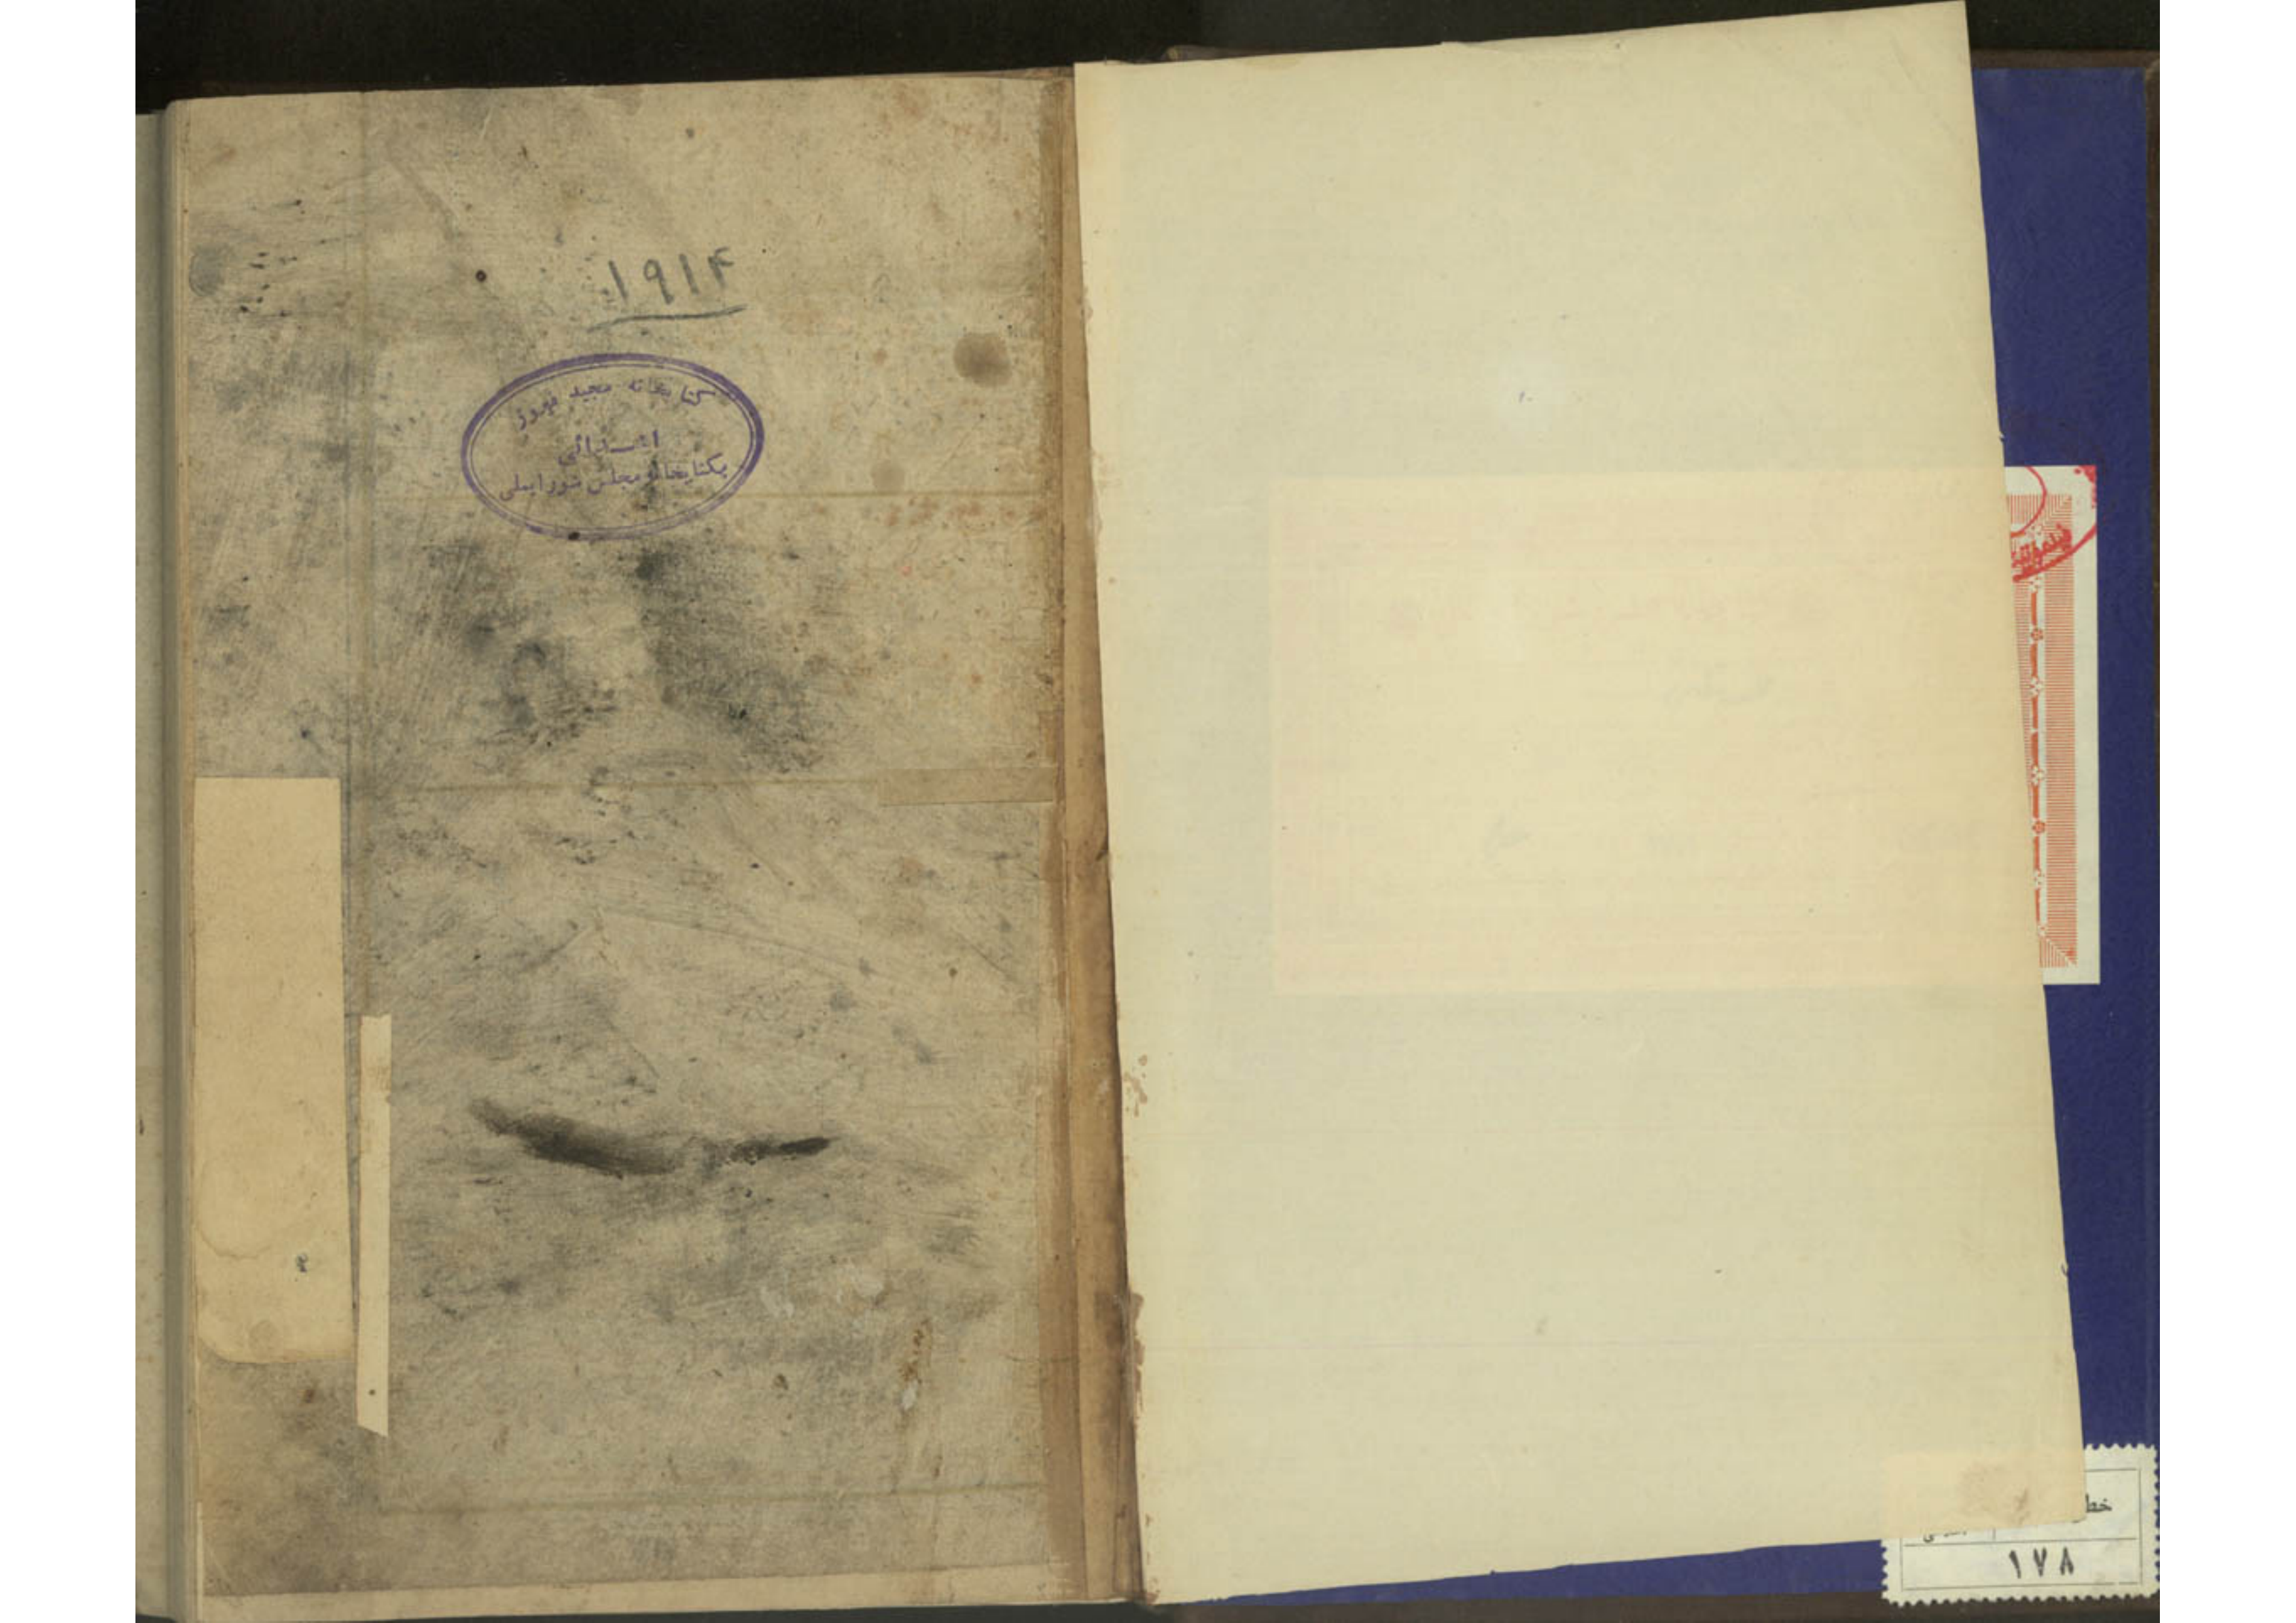 ۱۹۱۴
کتابخانه مجید فیروز
اهدائی
بکتابخانه مجلس شورایملی
خط
۱۷۸